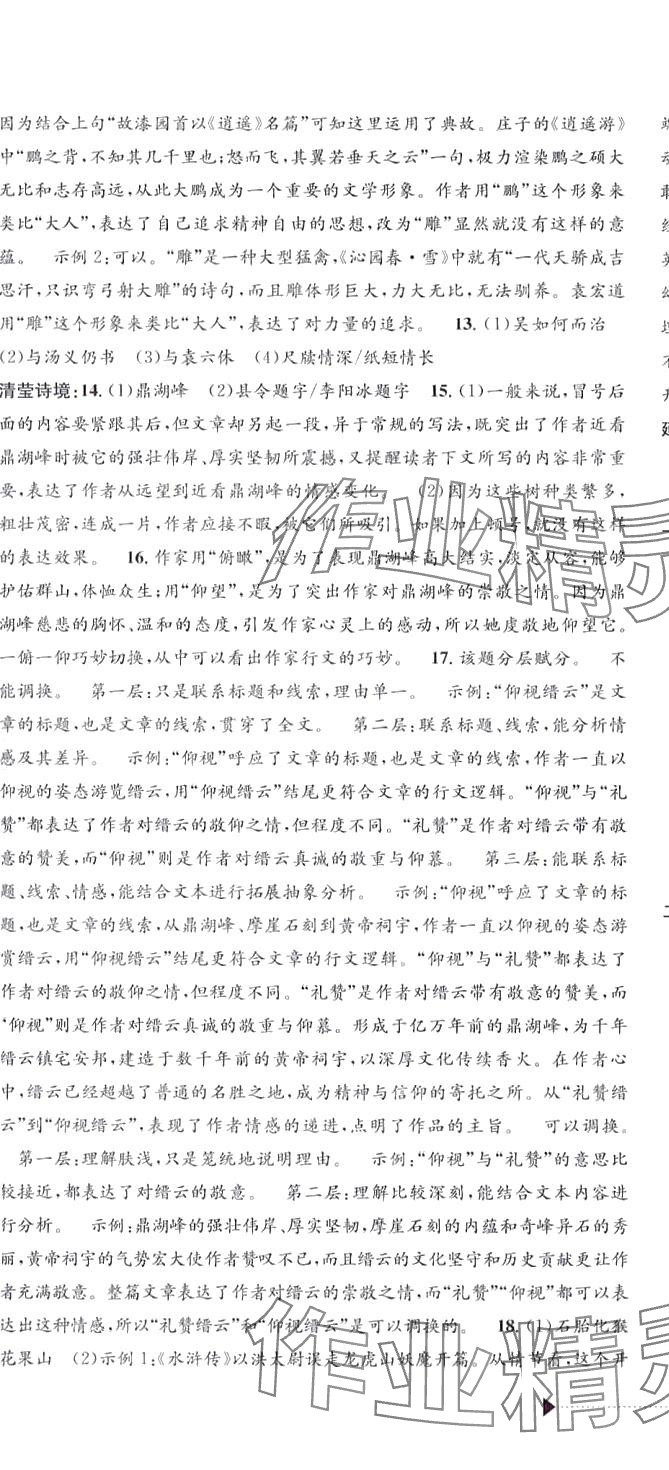 因为结合上句“故漆园首以《逍遥》名篇”可知这里运用了典故。庄子的《逍遥游》
中“鹏之背,不知其几千里也;怒而飞,其翼若垂天之云”一句,极力渲染鹏之硕大
无比和志存高远,从此大鹏成为一个重要的文学形象。作者用“鹏”这个形象来
类比“大人”,表达了自己追求精神自由的思想,改为“雕”显然就没有这样的意
蕴。 示例2:可以。“雕”是一种大型猛禽,《沁园春·雪》中就有“一代天骄成吉
思汗,只识弯弓射大雕”的诗句,而且雕体形巨大,力大无比,无法驯养。袁宏道
用“雕”这个形象来类比“大人”,表达了对力量的追求。 13.(1)吴如何而治
(2)与汤义仍书 (3)与袁六休 (4)尺牍情深/纸短情长
清莹诗境:14.(1)鼎湖峰 (2)县令题字/李阳冰题字 15.(1)一般来说,冒号后
面的内容要紧跟其后,但文章却另起一段,异于常规的写法,既突出了作者近看
鼎湖峰时被它的强壮伟岸、厚实坚韧所震撼,又提醒读者下文所写的内容非常重
要,表达了作者从远望到近看鼎湖峰的情感变化 (2)因为这些树种类繁多,
粗壮茂密,连成一片,作者应接不暇,被它们所吸引。如果加上顿号,就没有这样
的表达效果。 16.作家用“俯瞰”,是为了表现鼎湖峰高大结实,淡定从容,能够
护佑群山,体恤众生;用“仰望”,是为了突出作家对鼎湖峰的崇敬之情。因为鼎
湖峰慈悲的胸怀、温和的态度,引发作家心灵上的感动,所以她虔敬地仰望它。
一俯一仰巧妙切换,从中可以看出作家行文的巧妙。 17.该题分层赋分。 不
能调换。 第一层:只是联系标题和线索,理由单一。 示例:“仰视缙云”是文
章的标题,也是文章的线索,贯穿了全文。 第二层:联系标题、线索,能分析情
感及其差异。 示例:“仰视”呼应了文章的标题,也是文章的线索,作者一直以
仰视的姿态游览缙云,用“仰视缙云”结尾更符合文章的行文逻辑。“仰视”与“礼
赞”都表达了作者对缙云的敬仰之情,但程度不同。“礼赞”是作者对缙云带有敬
意的赞美,而“仰视”则是作者对缙云真诚的敬重与仰慕。 第三层:能联系标
题、线索、情感,能结合文本进行拓展抽象分析。 示例:“仰视”呼应了文章的标
题,也是文章的线索,从鼎湖峰、摩崖石刻到黄帝祠宇,作者一直以仰视的姿态游
赏缙云,用“仰视缙云”结尾更符合文章的行文逻辑。“仰视”与“礼赞”都表达了
作者对缙云的敬仰之情,但程度不同。“礼赞”是作者对缙云带有敬意的赞美,而
“仰视”则是作者对缙云真诚的敬重与仰慕。形成于亿万年前的鼎湖峰,为千年
缙云镇宅安邦,建造于数千年前的黄帝祠宇,以深厚文化传续香火。在作者心
中,缙云已经超越了普通的名胜之地,成为精神与信仰的寄托之所。从“礼赞缙
云”到“仰视缙云”,表现了作者情感的递进,点明了作品的主旨。 可以调换。
第一层:理解肤浅,只是笼统地说明理由。 示例:“仰视”与“礼赞”的意思比
较接近,都表达了对缙云的敬意。 第二层:理解比较深刻,能结合文本内容进
行分析。 示例:鼎湖峰的强壮伟岸、厚实坚韧,摩崖石刻的内蕴和奇峰异石的秀
丽,黄帝祠宇的气势宏大使作者赞叹不已,而且缙云的文化坚守和历史贡献更让作
者充满敬意。整篇文章表达了对缙云的崇敬之情,而“礼赞”“仰视”都可以表
达出这种情感,所以“礼赞缙云”和“仰视缙云”是可以调换的。 18.(1)石胎化猴
花果山 (2)示例1:《水浒传》以洪太尉误走龙虎山妖魔开篇。从情节看,这个开
作业精灵
作业精灵